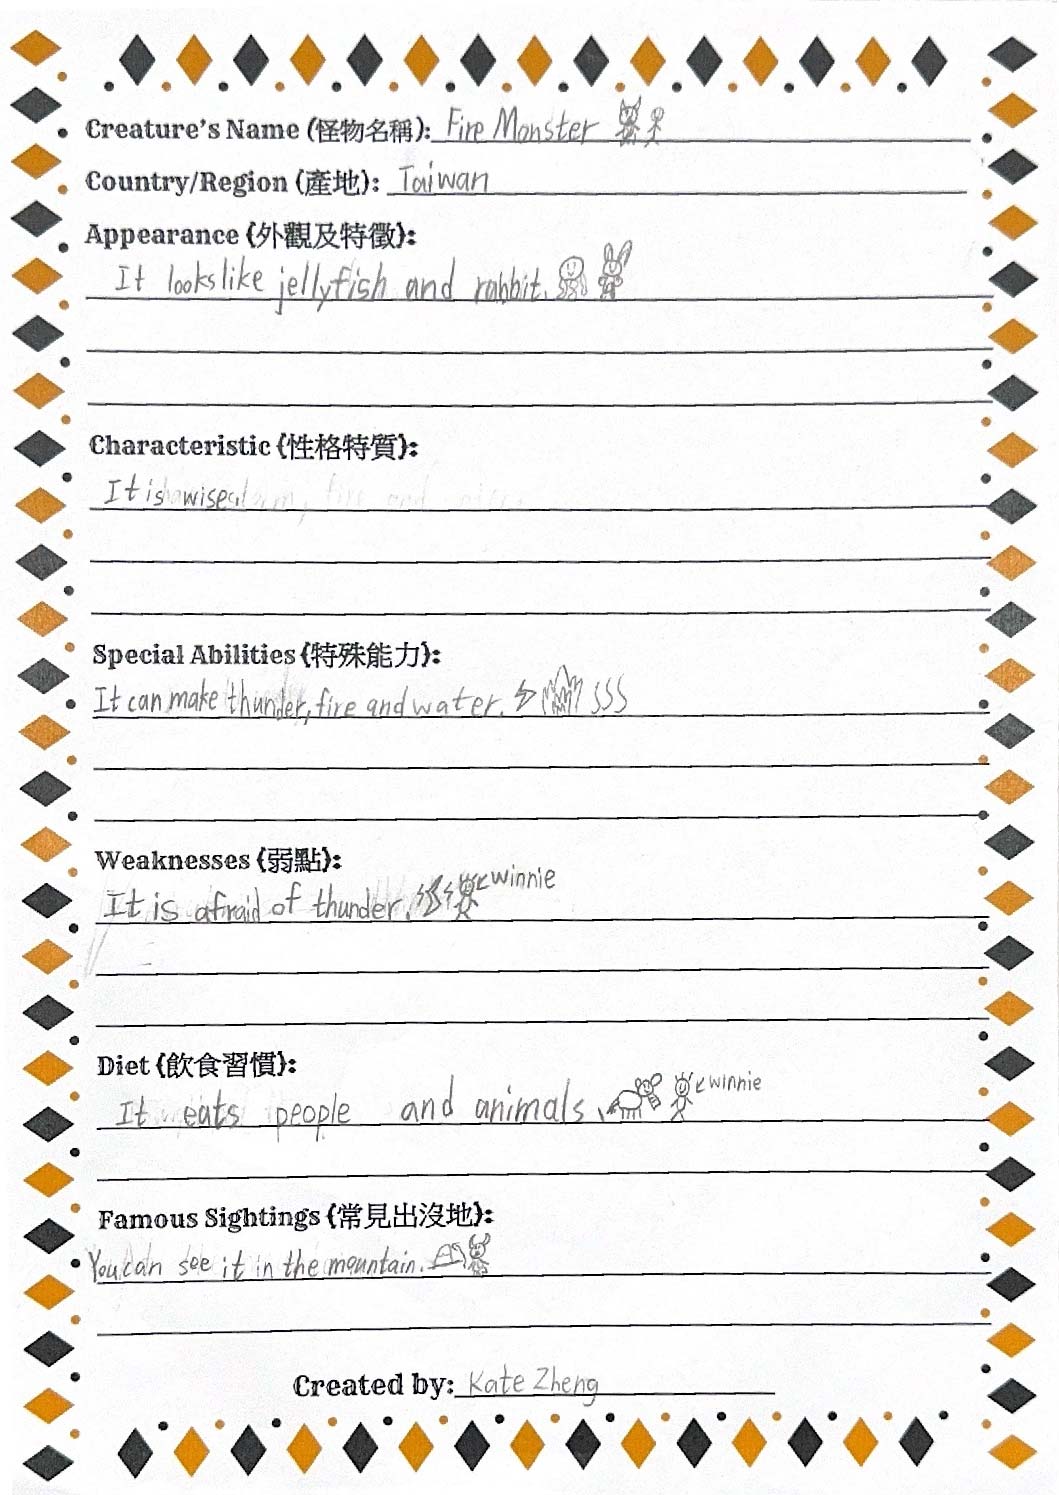 Creature's Name (怪物名稱): Fire Monster
Country/Region (產地): Taiwan
Appearance (外觀及特徵):
It looks like jellyfish and rabbit.
Characteristic (性格特質):
It is wise
Special Abilities (特殊能力):
It can make thunder, fire and water.
Weaknesses (弱點):
It is afraid of thunder. winnie
Diet (飲食習慣):
It eats people and animals. winnie
Famous Sightings (常見出沒地):
You can see it in the mountain.
Created by: Kate Zheng